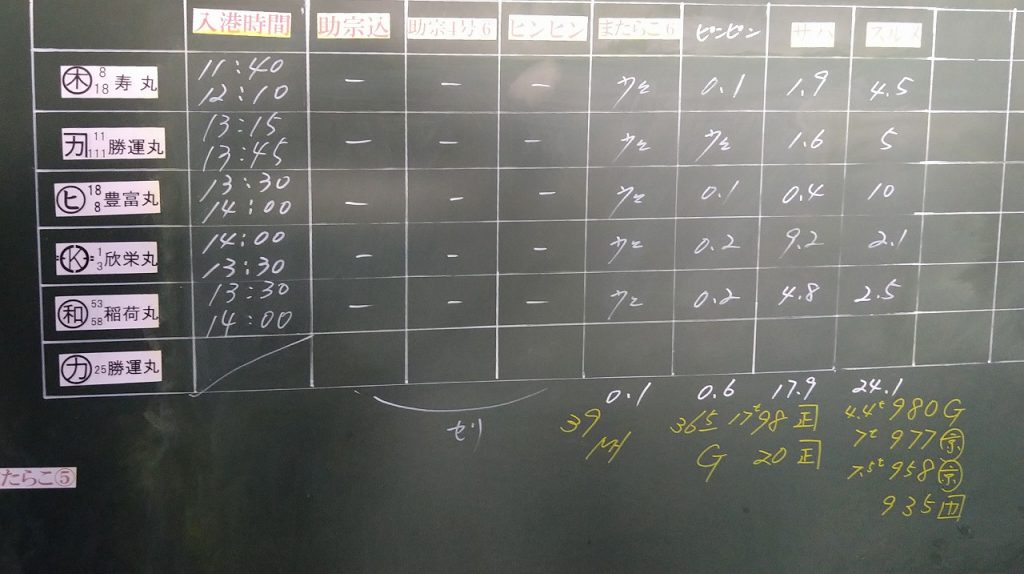 入港時間 助宗込 助宗4号6 ピンピン まだらこ6 ピンピン サバ スルメ
木 8 18 寿丸 11:40 12:10 ー ー ー ウエ 0.1 1.9 4.5
カ 11 111 勝運丸 13:15 13:45 ー ー ー ウエ ウエ 1.6 5
ヒ 18 8 豊富丸 13:30 14:00 ー ー ー ウエ 0.1 0.4 10
K 1 3 欣栄丸 14:00 13:30 ー ー ー ウエ 0.2 9.2 2.1
和 53 58 稲荷丸 13:30 14:00 ー ー ー ウエ 0.2 4.8 2.5
カ 25 勝運丸
0.1 0.6 17.9 24.1
セリ
39 365 17t 98 正 4.4t 980 G
G 20 正 7t 977 宗
7.5t 958 宗
935 カ
たらこ⑤